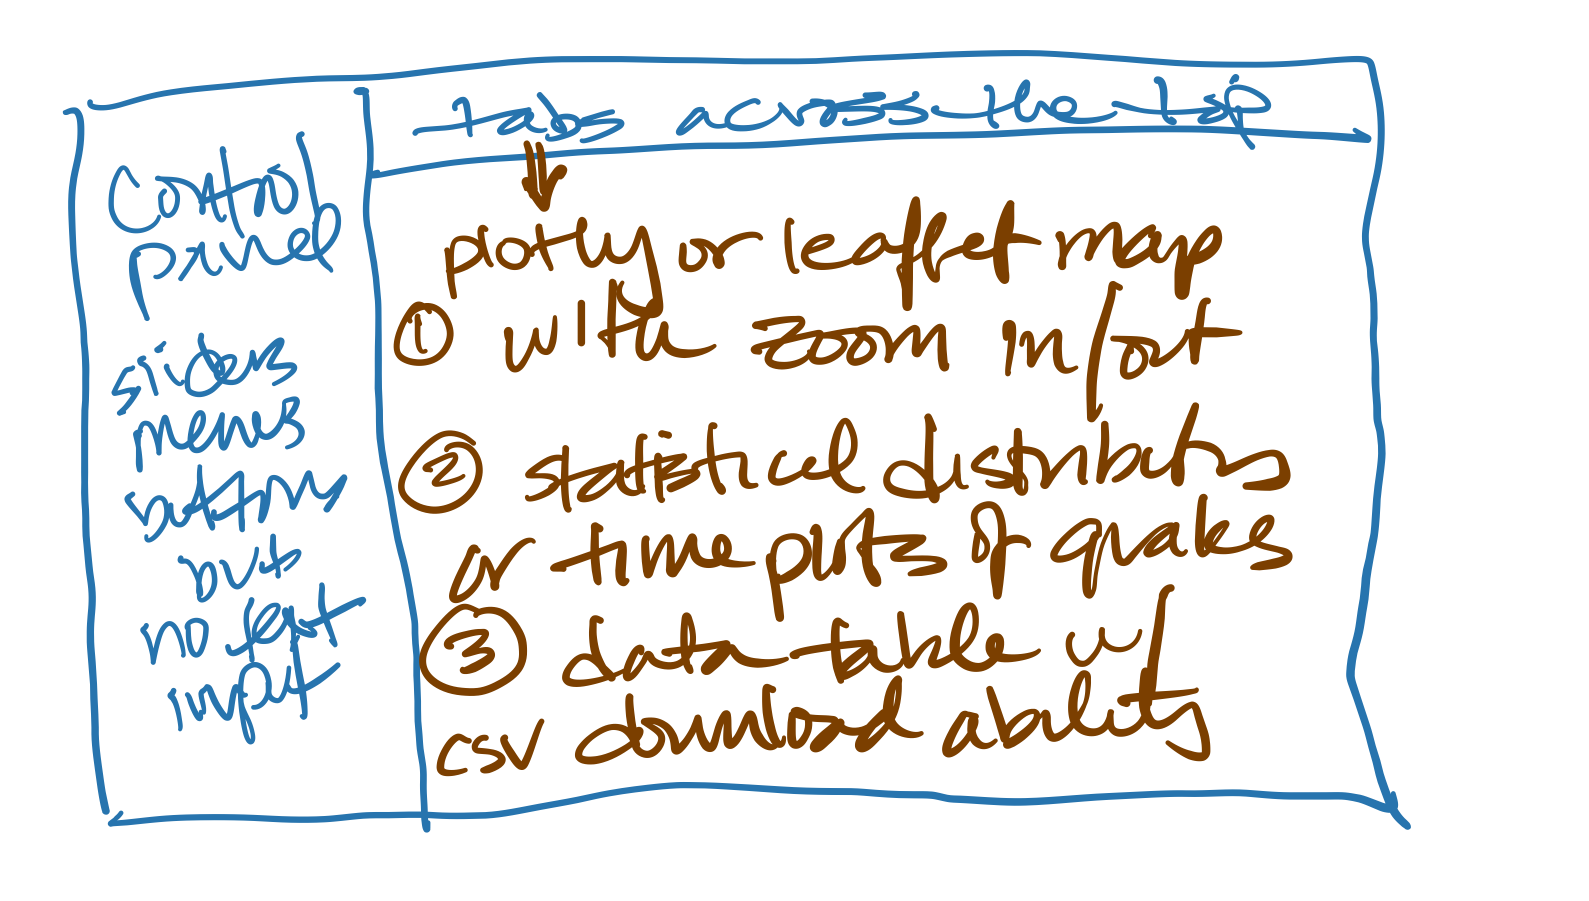 tabs across the top
control
panel
sliders
menus
buttons
but
no text
input
plotly or leaflet map
① with zoom in/out
② statistical distributions
or time plots of quakes
③ data table w/
csv download ability